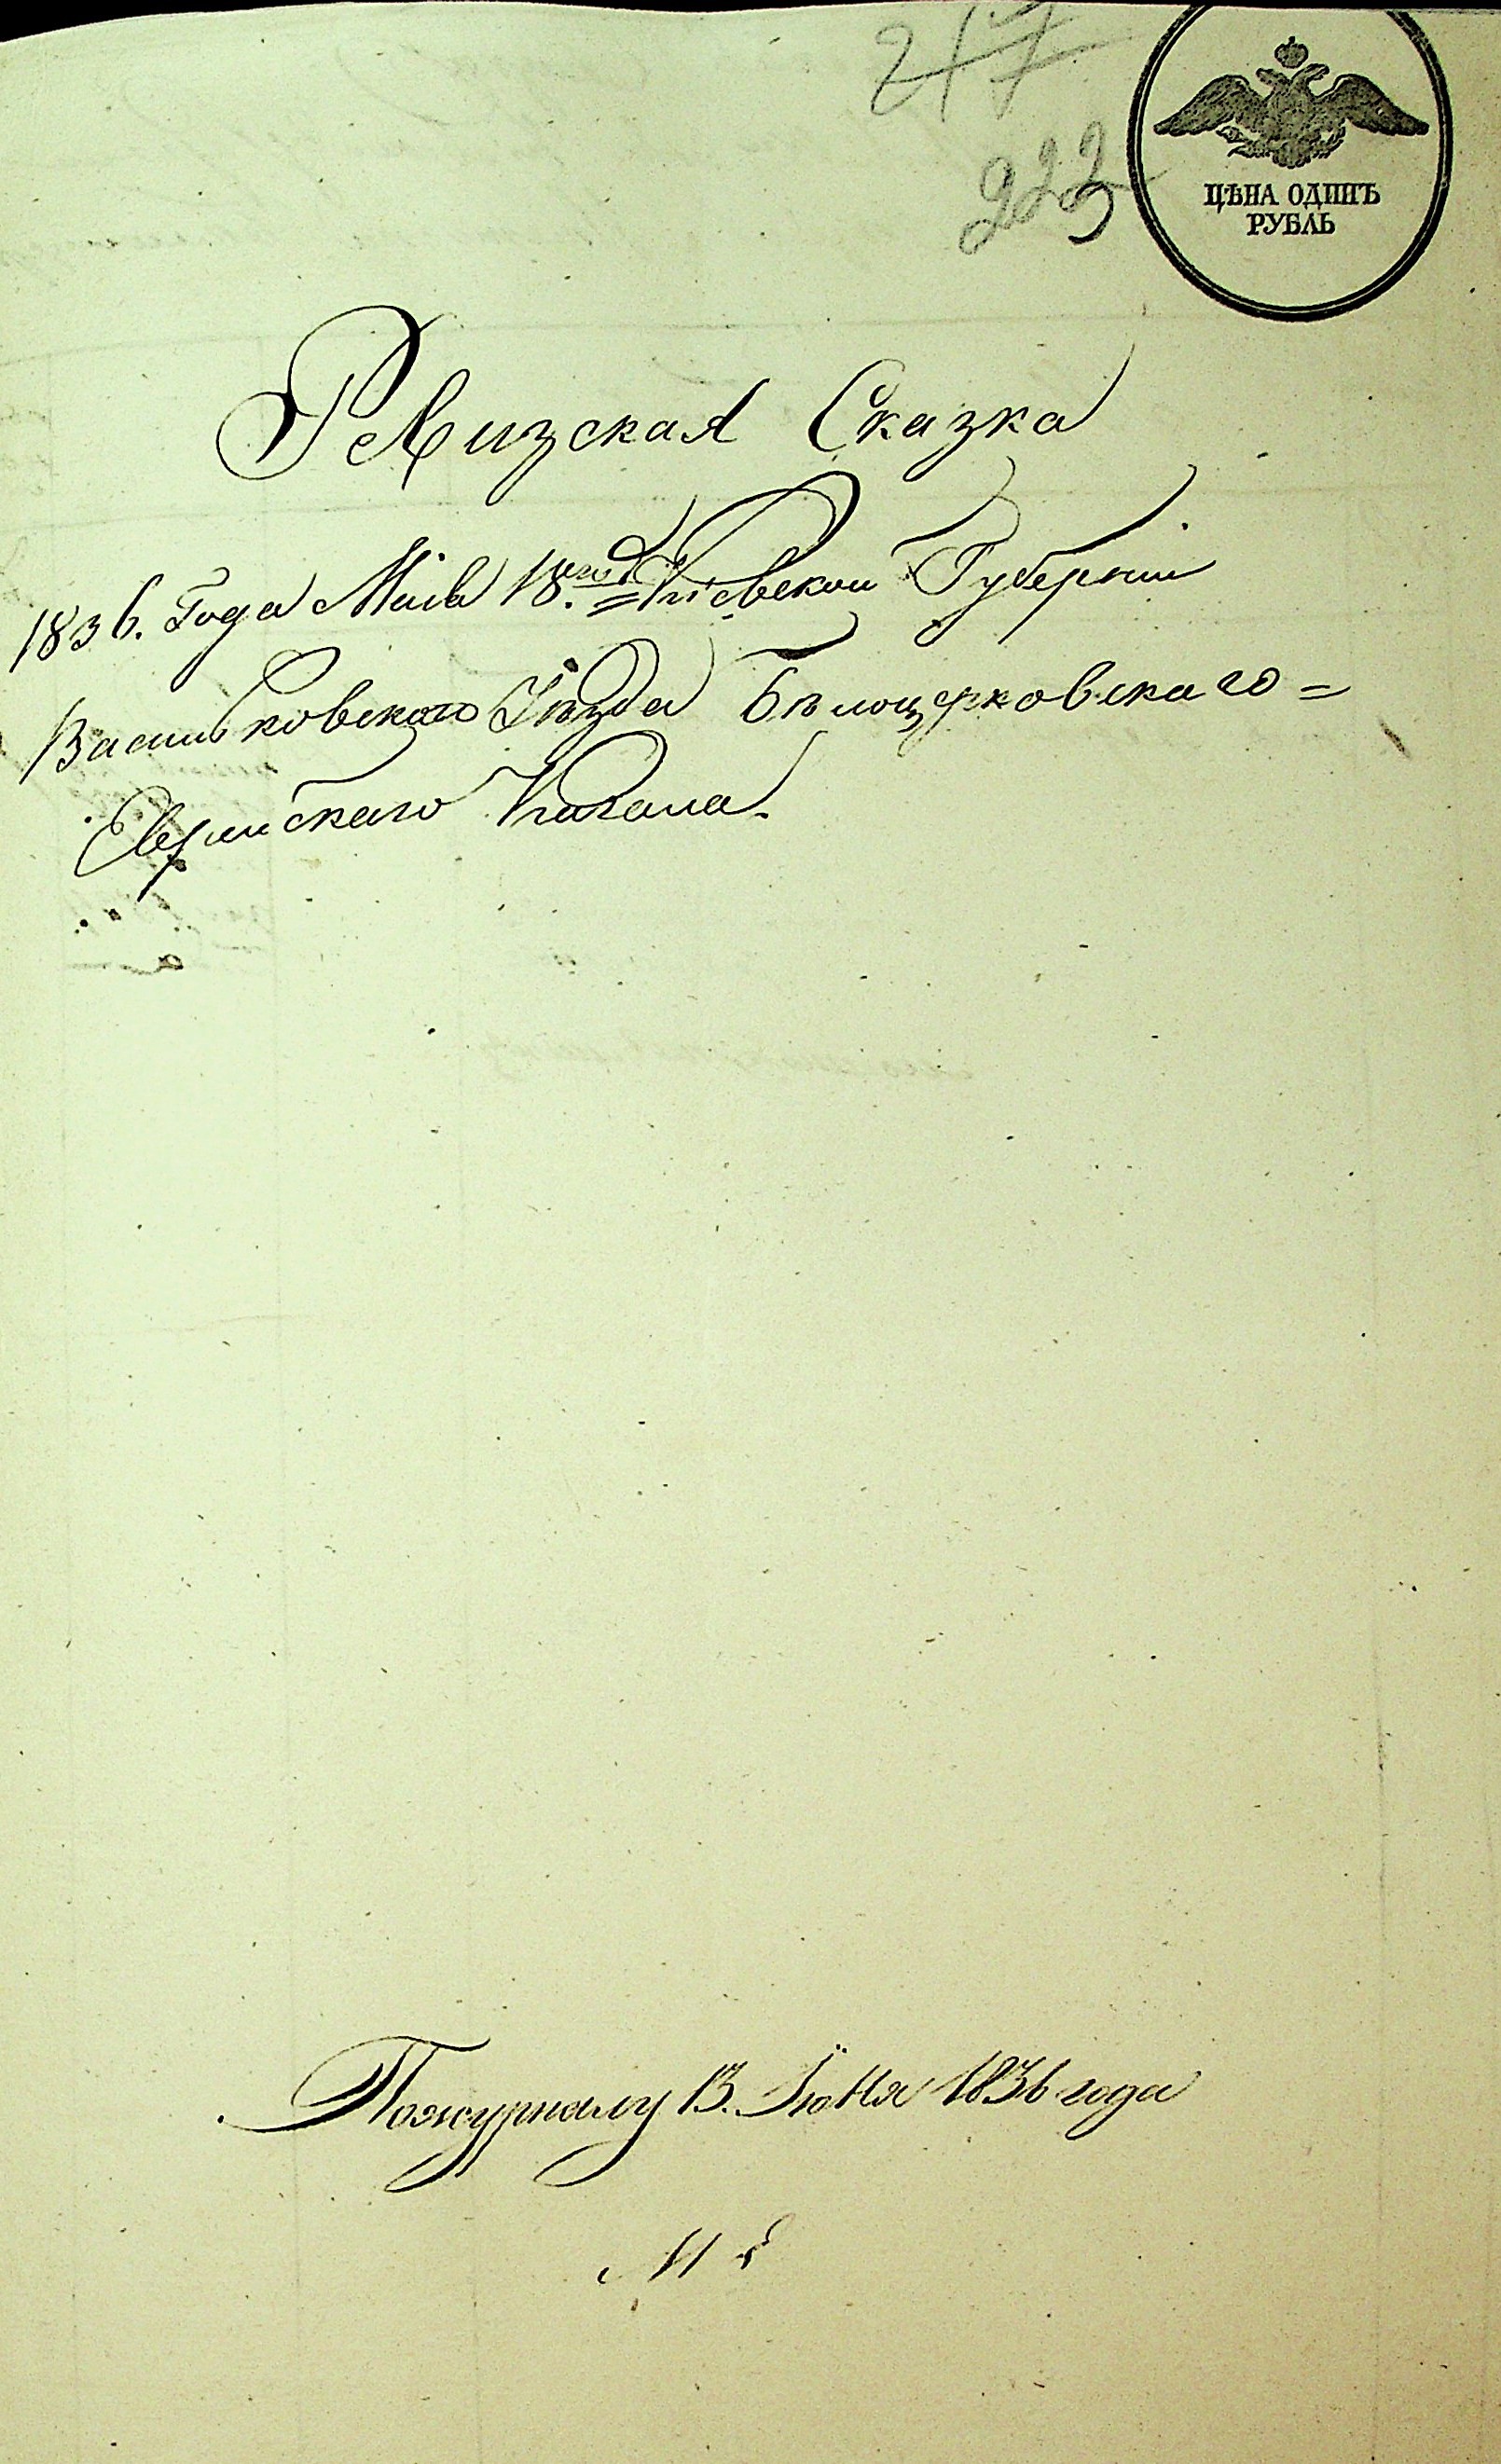 217
223
ЦѢНА ОДИНЪ
РУБЛЬ
Ревизская Сказка
1836. Года Маія 18го = Кіевской Губерніи
Васильковскаго Уѣзда Бѣлоцерковскаго =
Еврейскаго Кагала.
По журналу 13. Іюня 1836 года